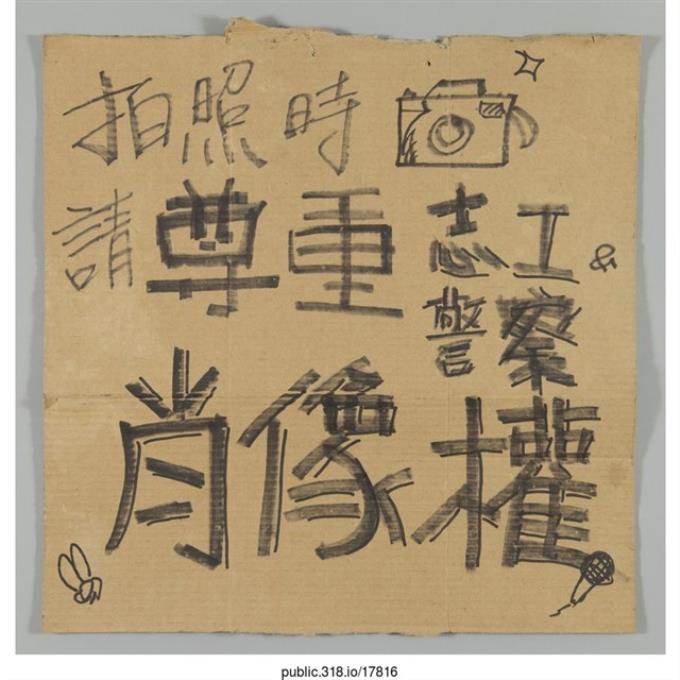 拍照時
請尊重志工&
警察
肖像權
public.318.io/17816